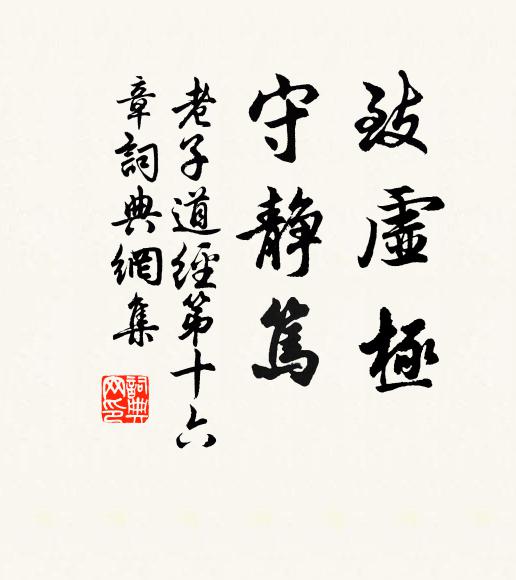 致虛極
守靜篤
老子道經第十六
章詞典網集
詞典
网印